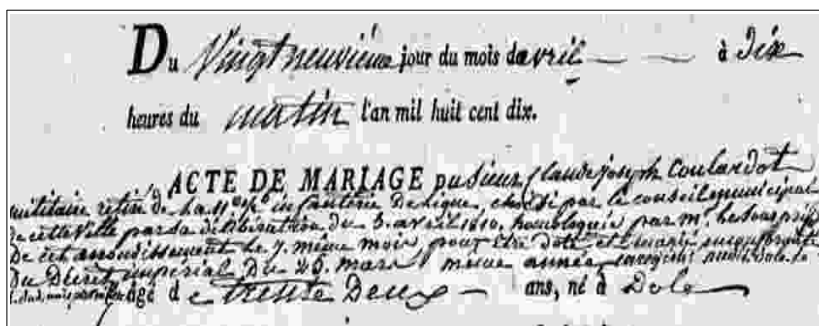 Du Vingt neuvième jour du mois d'avril — — à Dix
heures du matin l'an mil huit cent dix.
ACTE DE MARIAGE du Sieur Claude joseph Coulardot
militaire retiré de la infanterie de ligne, choisi par le conseil municipal
de cette ville par sa délibération du 3. avril 1810. homologuée par mr. le Sous préfet
de cet arrondissement le 7. même mois, pour être doté et marié
du Décret impérial du 25. mars même année
âgé de trente Deux — ans, né à Dole